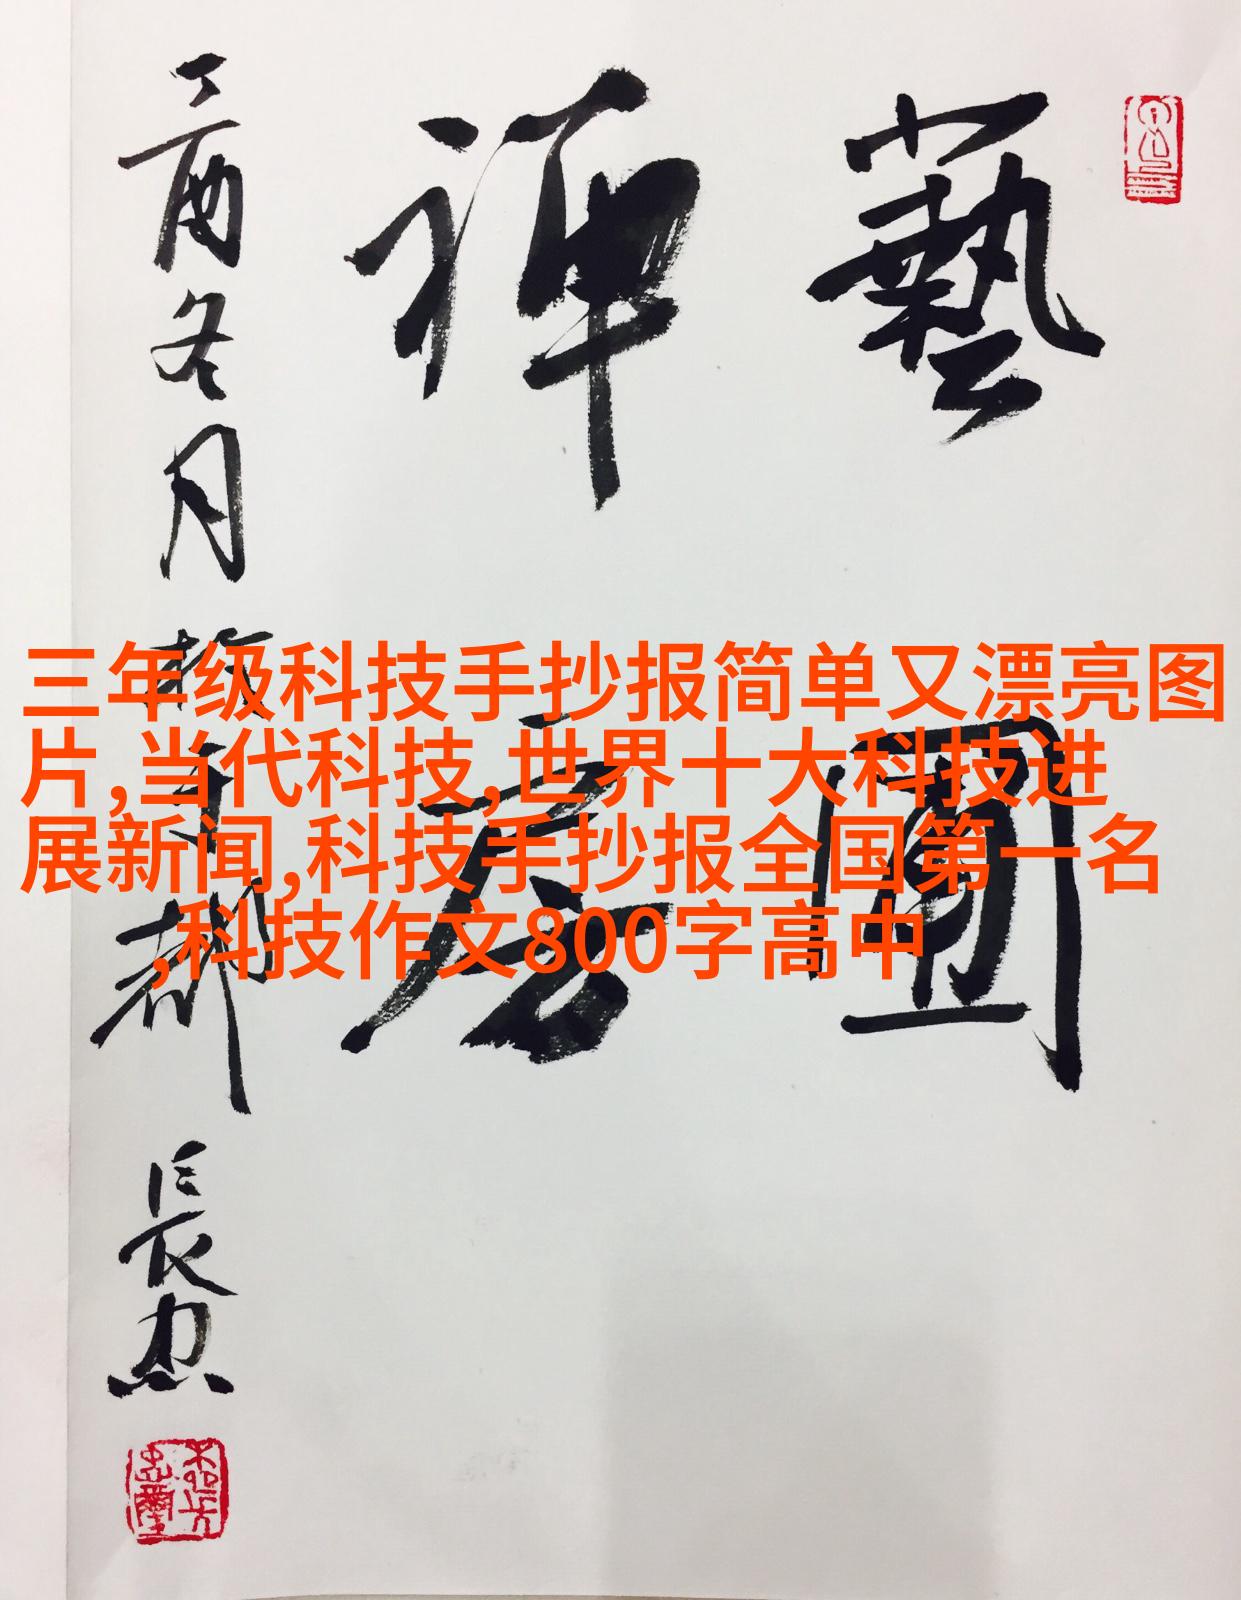 藝圃
禅居
丁酉冬月於京都
長忠
三年级科技手抄报简单又漂亮图
片,当代科技,世界十大科技进
展新闻,科技手抄报全国第一名
,科技作文800字高中